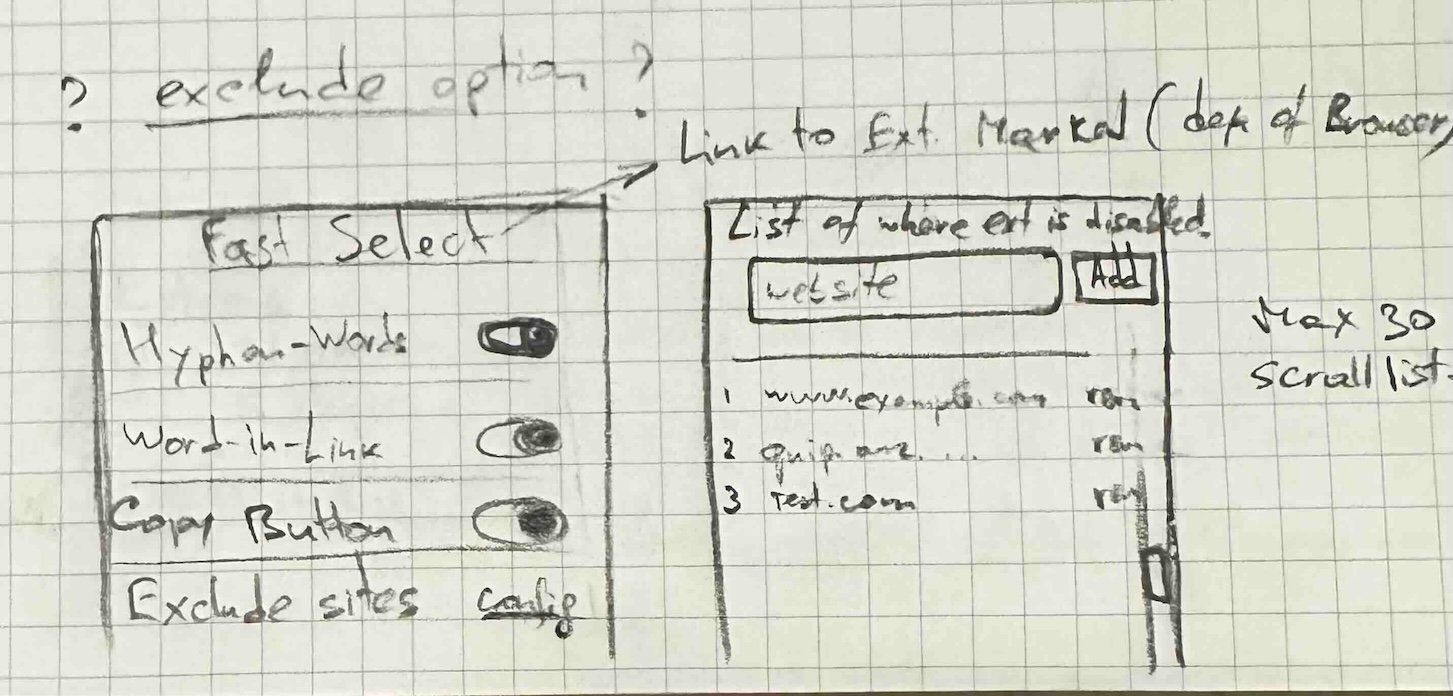 ? exclude option ?
Link to Ext. Market (dep of Browser)
Fast Select
Hyphen-Words
Word-in-Link
Copy Button
Exclude sites config
List of where ext is disabled.
website Add
1 www.example.com rem
2 quip. rem
3 Test.com rem
Max 30
scroll list.